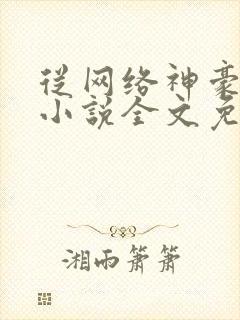 从网络神豪
小说全文免
湘雨箫箫